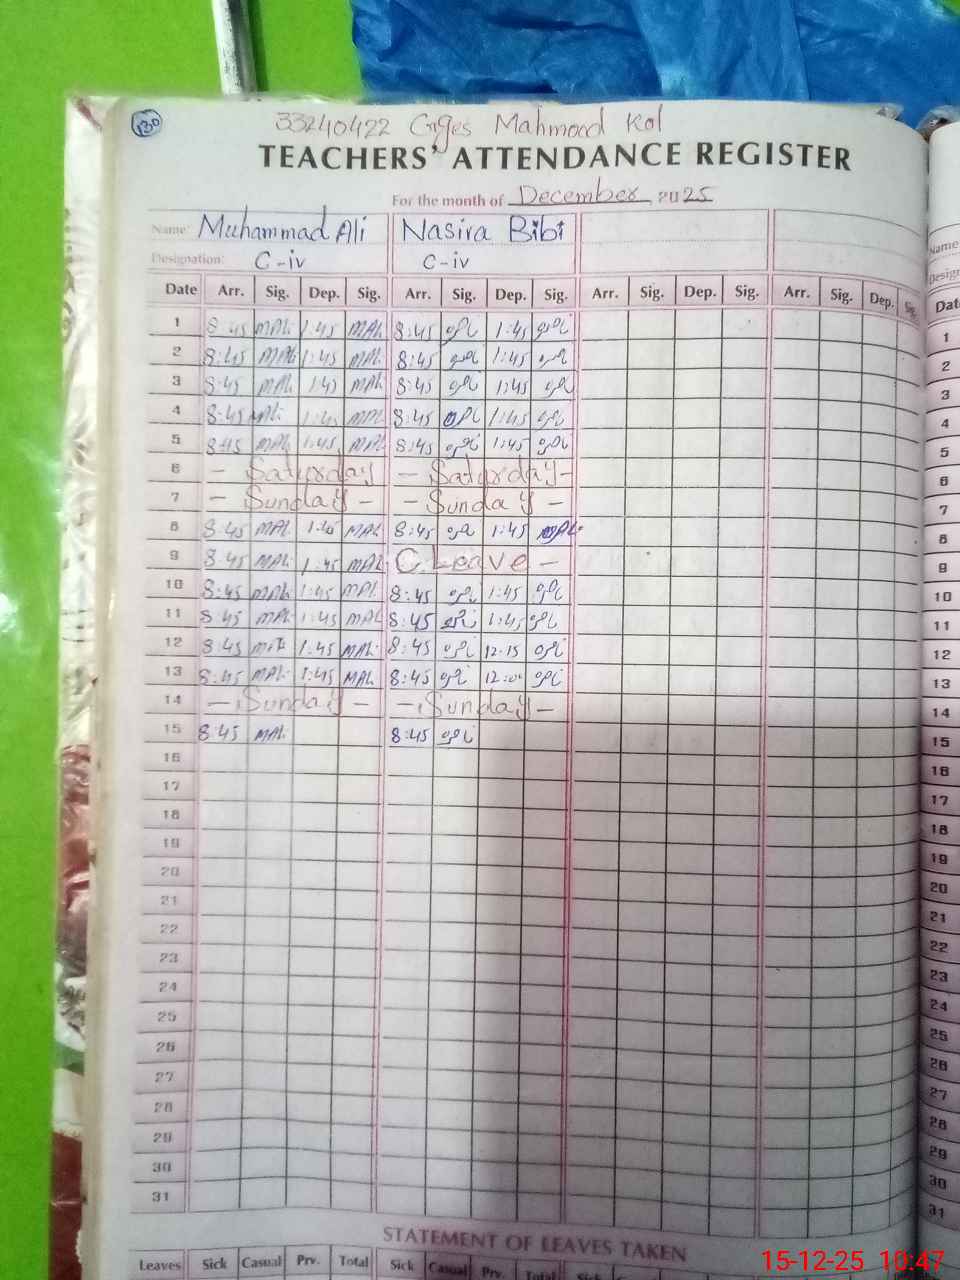 130
33240422 Cnges Mahmood Kol
TEACHERS' ATTENDANCE REGISTER
For the month of December 2025
Name: Muhammad Ali Nasira Bibi
Designation: C-iv C-iv
Date Arr. Sig. Dep. Sig. Arr. Sig. Dep. Sig. Arr. Sig. Dep. Sig. Arr. Sig. Dep. Sig.
1 8:45 MAli 1:45 MAli 8:45 1:45
2 8:45 MAli 1:45 MAli 8:45 1:45
3 8:45 MAli 1:45 MAli 8:45 1:45
4 8:45 MAli 1:45 MAli 8:45 1:45
5 8:45 MAli 1:45 MAli 8:45 1:45
6 - Saturday - Saturday -
7 - Sunday - - Sunday -
8 8:45 MAli 1:45 MAli 8:45 1:45
9 8:45 MAli 1:45 MAli C. Leave -
10 8:45 MAli 1:45 MAli 8:45 1:45
11 8:45 MAli 1:45 MAli 8:45 1:45
12 8:45 MAli 1:45 MAli 8:45 12:15
13 8:45 MAli 1:45 MAli 8:45 12:00
14 - Sunday - - Sunday -
15 8:45 MAli 8:45
16
17
18
19
20
21
22
23
24
25
26
27
28
29
30
31
STATEMENT OF LEAVES TAKEN
Leaves Sick Casual Prv. Total Sick Casual Prv. Total Sick
Name
Design
Date
1
2
3
4
5
6
7
8
9
10
11
12
13
14
15
16
17
18
19
20
21
22
23
24
25
26
27
28
29
30
31
15-12-25 10:47